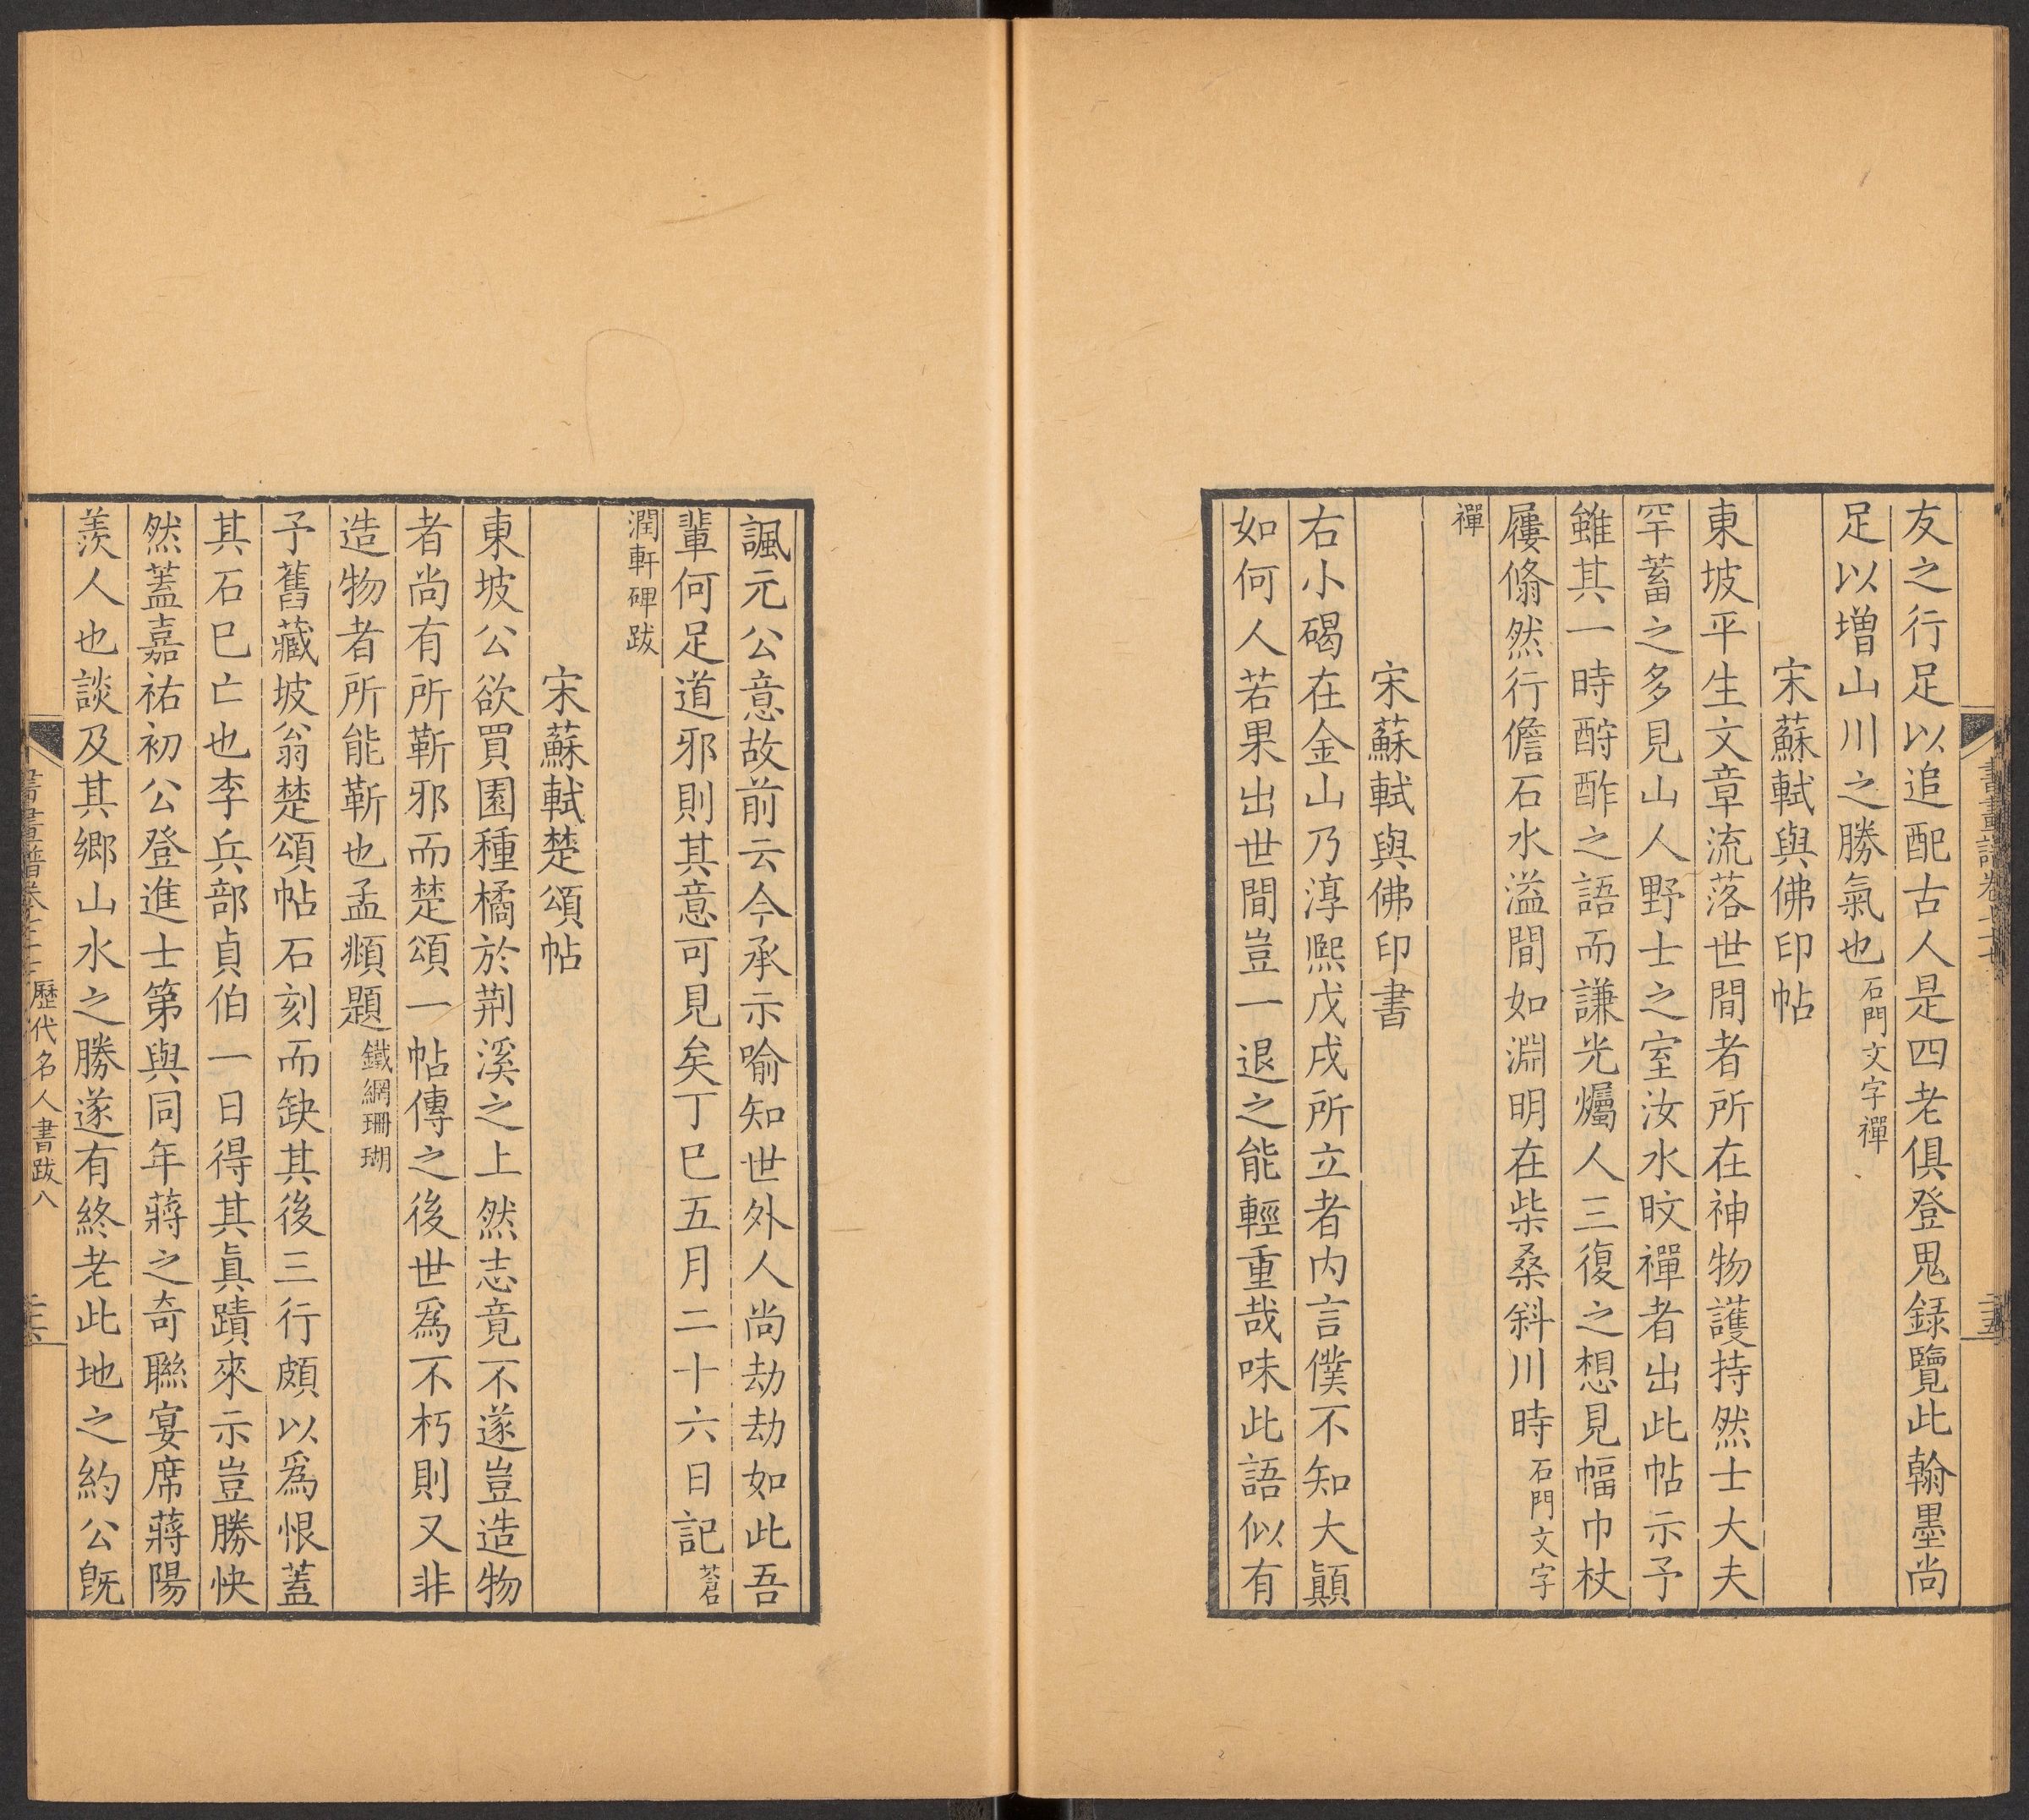 友之行足以追配古人是四老俱登鬼録覽此翰墨尚
足以増山川之勝氣也石門文字禪
宋蘇軾與佛印帖
東坡平生文章流落世間者所在神物護持然士大夫
罕蓄之多見山人野士之室汝水旼禪者出此帖示予
雖其一時酧酢之語而謙光爥人三復之想見幅巾杖
屨翛然行儋石水溢間如淵明在柴桑斜川時石門文字
禪
宋蘇軾與佛印書
右小碣在金山乃淳熈戊戌所立者内言僕不知大顛
如何人若果出世間豈一退之能輕重哉味此語似有
諷元公意故前云今承示喻知世外人尚劫劫如此吾
輩何足道邪則其意可見矣丁巳五月二十六日記蒼
潤軒碑跋
宋蘇軾楚頌帖
東坡公欲買園種橘於荆溪之上然志竟不遂豈造物
者尚有所靳邪而楚頌一帖傳之後世爲不朽則又非
造物者所能靳也孟頫題鐵網珊瑚
予舊藏坡翁楚頌帖石刻而缺其後三行頗以爲恨蓋
其石巳亡也李兵部貞伯一日得其眞蹟來示豈勝快
然蓋嘉祐初公登進士第與同年蔣之奇聯宴席蔣陽
羨人也談及其鄉山水之勝遂有終老此地之約公旣
歷代名人書跋八